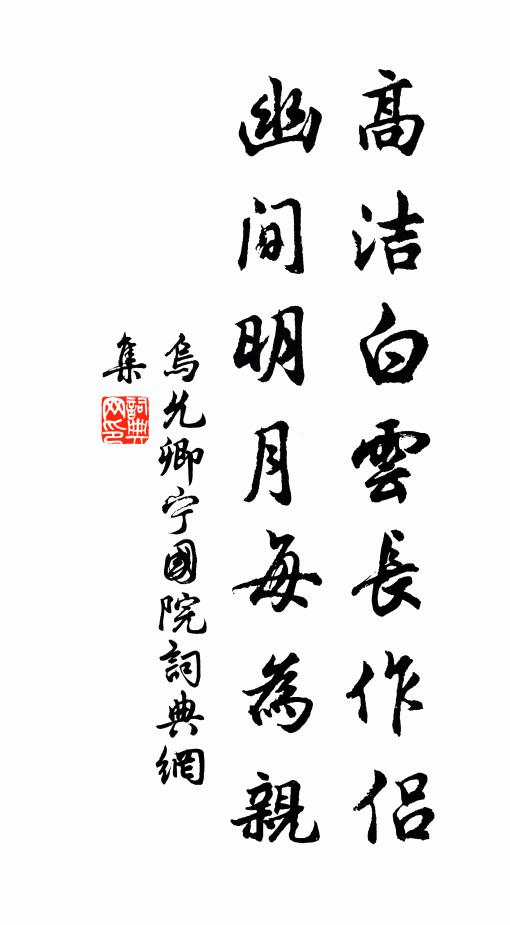 高洁白雲長作侶
幽间明月每為親
烏允卿宁國院詞典網
集
詞典
网印